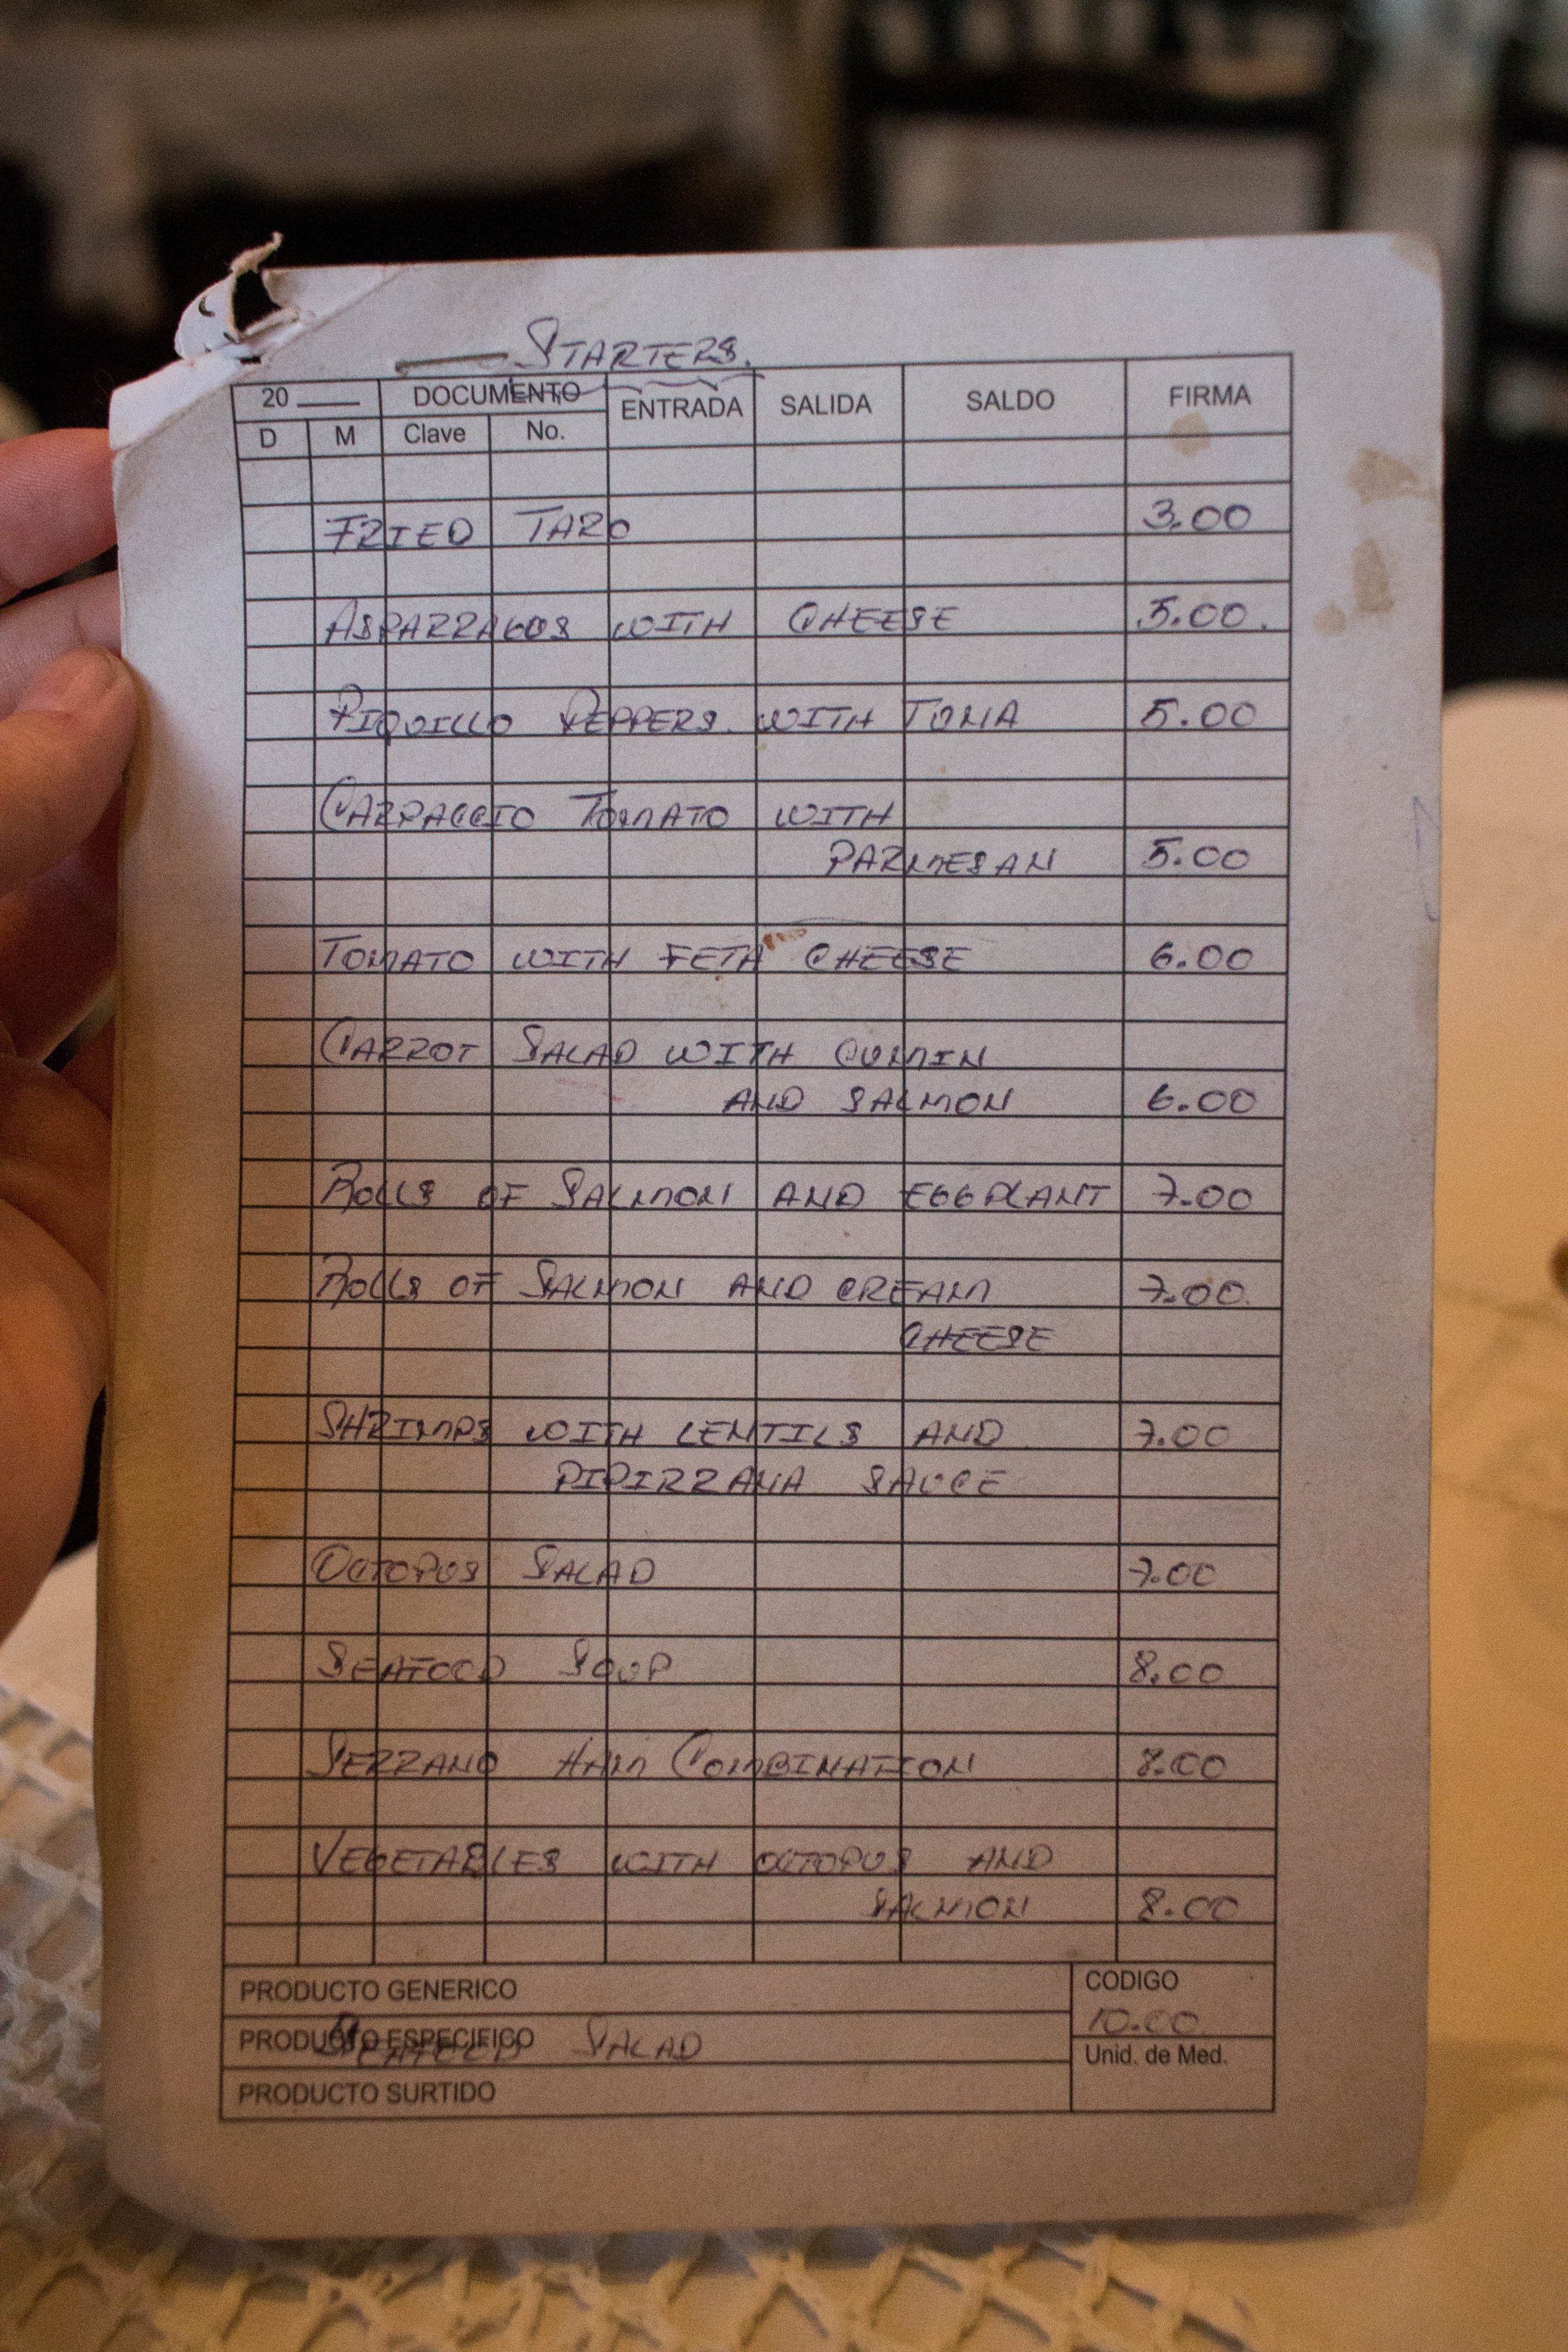 STARTERS.
20 DOCUMENTO ENTRADA SALIDA SALDO FIRMA
D M Clave No.
FRIED TARO 3.00
ASPARRAGUS WITH CHEESE 5.00.
PIQUILLO PEPPERS. WITH TUNA 5.00
CARPACCIO TOMATO WITH
PARMESAN 5.00
TOMATO WITH FETA CHEESE 6.00
CARROT SALAD WITH CUMIN
AND SALMON 6.00
ROLLS OF SALMON AND EGGPLANT 7.00
ROLLS OF SALMON AND CREAM 7.00.
CHEESE
SHRIMPS WITH LENTILS AND 7.00
PIPIRRANA SAUCE
OCTOPUS SALAD 7.00
SEAFOOD SOUP 8.00
SERRANO HAM COMBINATION 8.00
VEGETABLES WITH OCTOPUS AND
SALMON 8.00
PRODUCTO GENERICO CODIGO
10.00
PRODUCTO ESPECIFICO
SEAFOOD SALAD
Unid. de Med.
PRODUCTO SURTIDO